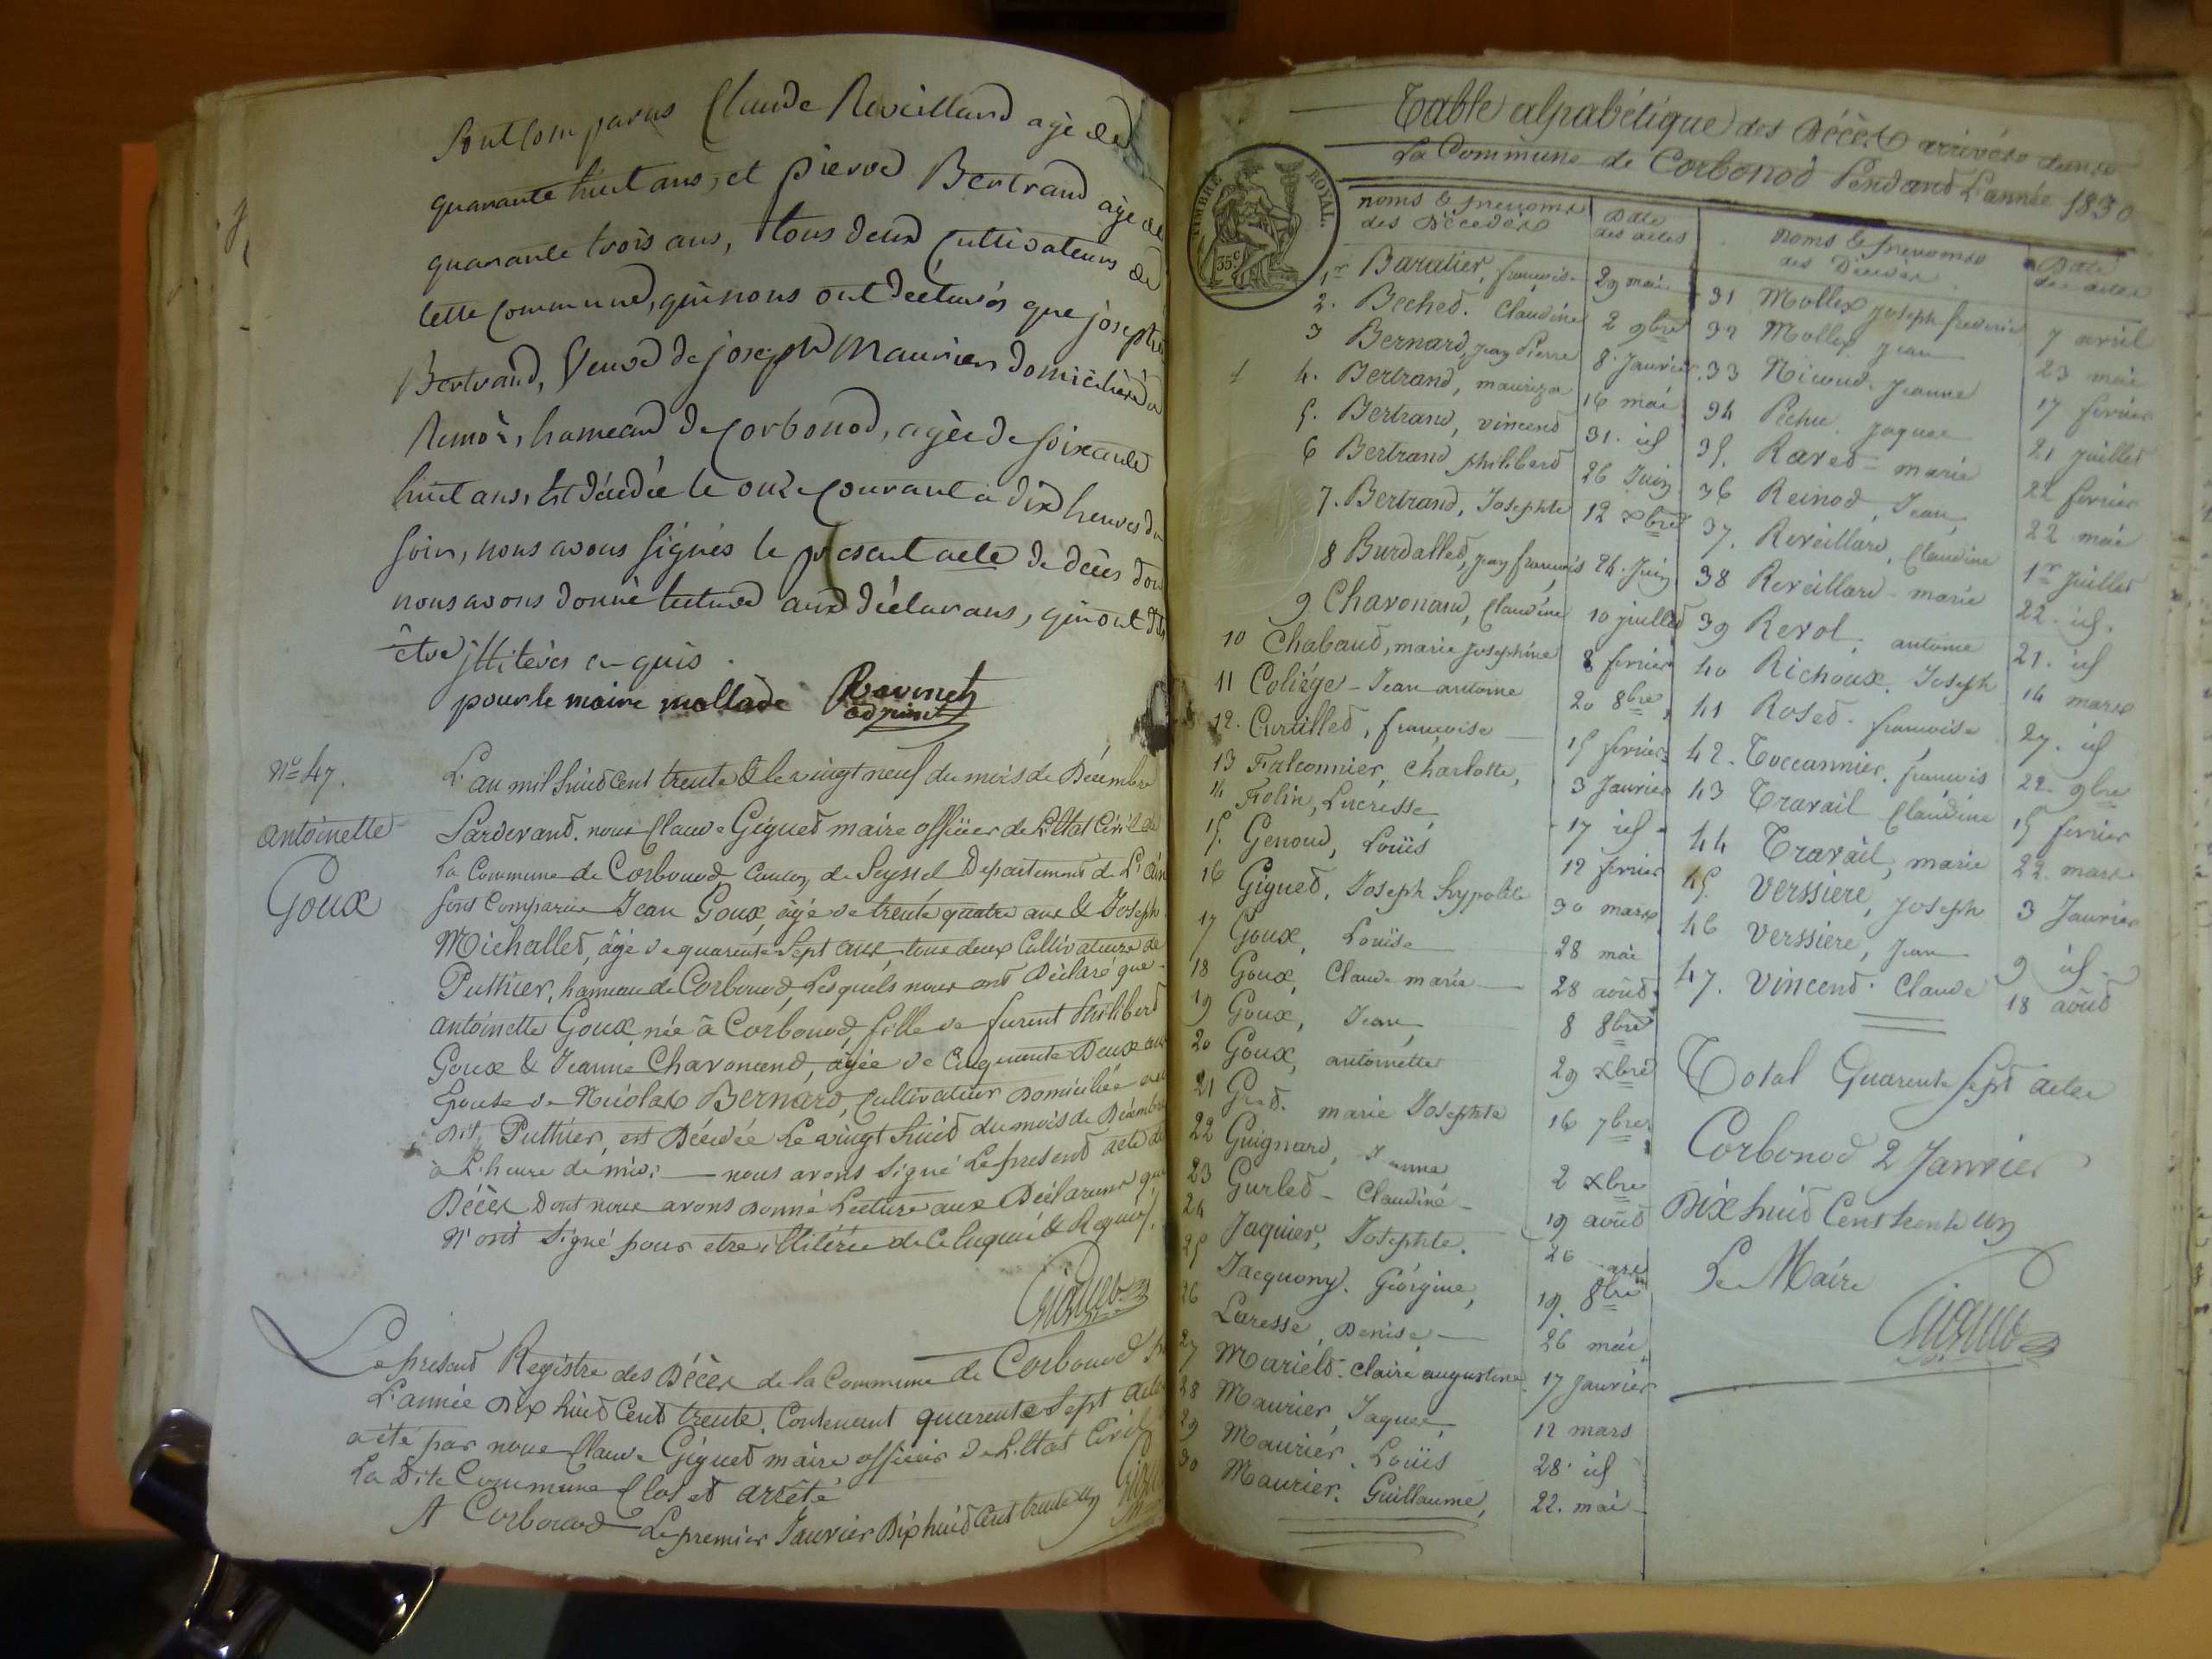 Sont Comparus Claude Reveillard agé de
quarante huit ans, et pierre Bertrand agé de
quarante trois ans, tous deux Cultivateurs de
Cette Commune, qui nous ont déclarés que josephte
Bertrand, Veuve de joseph Maurier domicilièe à
Remoz, hameaud de Corbonod, agèe de soixante
huit ans, est décédée le onze courant à dix heures du
soir, nous avons signés le present acte de déces dont
nous avons donné lecture aux déclarans, qui ont dit
être illiterés enquis.
pour le maire mallade Ravinet
adjoint
N° 47.
antoinette
Goux
L'an mil huid Cent trente & le vingt neuf du mois de Décembre
Pardevant nous Claude Giguet maire officier de L'Etat Civil de
La Commune de Corbonod Canton de Seyssel Departement de L'ain
sont Comparus Jean Goux, âgé de trente quatre ans & Joseph
Michalled, âgé de quarente Sept ans, tous deux Cultivateurs de
Puthier, hameau de Corbonod, Lesquels nous ont Déclaré que
antoinette Goux née à Corbonod, fille de furent Philiberd
Goux & Jeanne Chavonend, âgée de Cinquante Deux ans
Epouse de Nicolas Bernard, Cultivateur Domiciliée au
dit Puthier, est Décédée Le vingt huid du mois de Décembre
à L'heure de midi — nous avons signé Le present acte de
Décès Dont nous avons Donné Lecture aux Déclarans qui
N'ont signé pour etre illiterés de Ce Enquis & Requis.
Giguet
Le présend Registre des Décès de la Commune de Corbonod
L'année Dix huid Cend trente. Contenant quarente Sept actes
a été par nous Claude Giguet maire officier de L'Etat Civil
La Dite Commune Clos et arrêté
A Corbonod Le premier Janvier Dix huid Cent trente un
Table alpabétique des Décès arrivés dans
La Commune de Corbonod Pendant L'année 1830
TIMBRE ROYAL
35 c
noms & prenoms des Décédés | Date des actes | noms & prenoms des Décédés | Date des actes
1r Baratier, françoise 29 mai
2. Beched. Claudine 2 9bre
3 Bernard, Jean Pierre 8. Janvier
4. Bertrand, mauriza 16 mai
5. Bertrand, vincend 31. id
6 Bertrand philiberd 26 Juin
7. Bertrand, Josephte 12 xbre
8 Burdalled, jean françois 24. Juin
9 Chavonand, Claudine 10 juilled
10 Chabaud, marie josephine 8 fevrier
11 Coliége - Jean antoine 20 8bre
12. Curtilled, françoise 15 fevrier
13 Falconnier, Charlotte, 3 Janvier
14 Folin, Lucresse, 17 id
15. Genoud, Louïs 12 fevrier
16 Gigued, Joseph hypolite 30 mars
17 Goux, Louïse 28 mai
18 Goux, Claude marie 28 aoûd
19 Goux, Jean, 8 8bre
20 Goux, antoinette 29 xbre
21 marie Josephte 16 7bre
22 Guignard, 2 xbre
23 Gurled - Claudine 19 aoûd
24 Jaquier, Josephte. 26
25 Jacquony. Géorgine, 19. 8bre
26 Laresse, Denise 26 mai
27 Marield. Claire augustine 17 Janvier
28 Maurier, Jaques 12 mars
29 Maurier. Louïs 28. id
30 Maurier. Guillaume, 22. mai
31 Mollex Joseph frederic 7 avril
32 Mollex Jean 23 mai
33 Nicoud. Jeanne 17 fevrier
34 Pechu. Jaques 21 juilled
35. Raved - marie 22 fevrier
36 Reinod, Jean, 22 mai
37. Reveillard, Claudine 1r juilled
38 Reveillard - marie 22. id.
39 Revol, antoine 21. id
40 Richoux. Joseph 14 mars
41 Rosed. françoise 27. id
42. Toccannier. françois 22. 9bre
43 Travail Claudine 15 fevrier
44 Travail, marie 22. mars
45. Verssiere, Joseph 3 Janvier
46 Verssiere, Jean 9 id
47. Vincend. Claude 18 aoûd
Total Quarente Sept actes
Corbonod 2 Janvier
Dix huid Cent trente un
Le Maire
Giguet